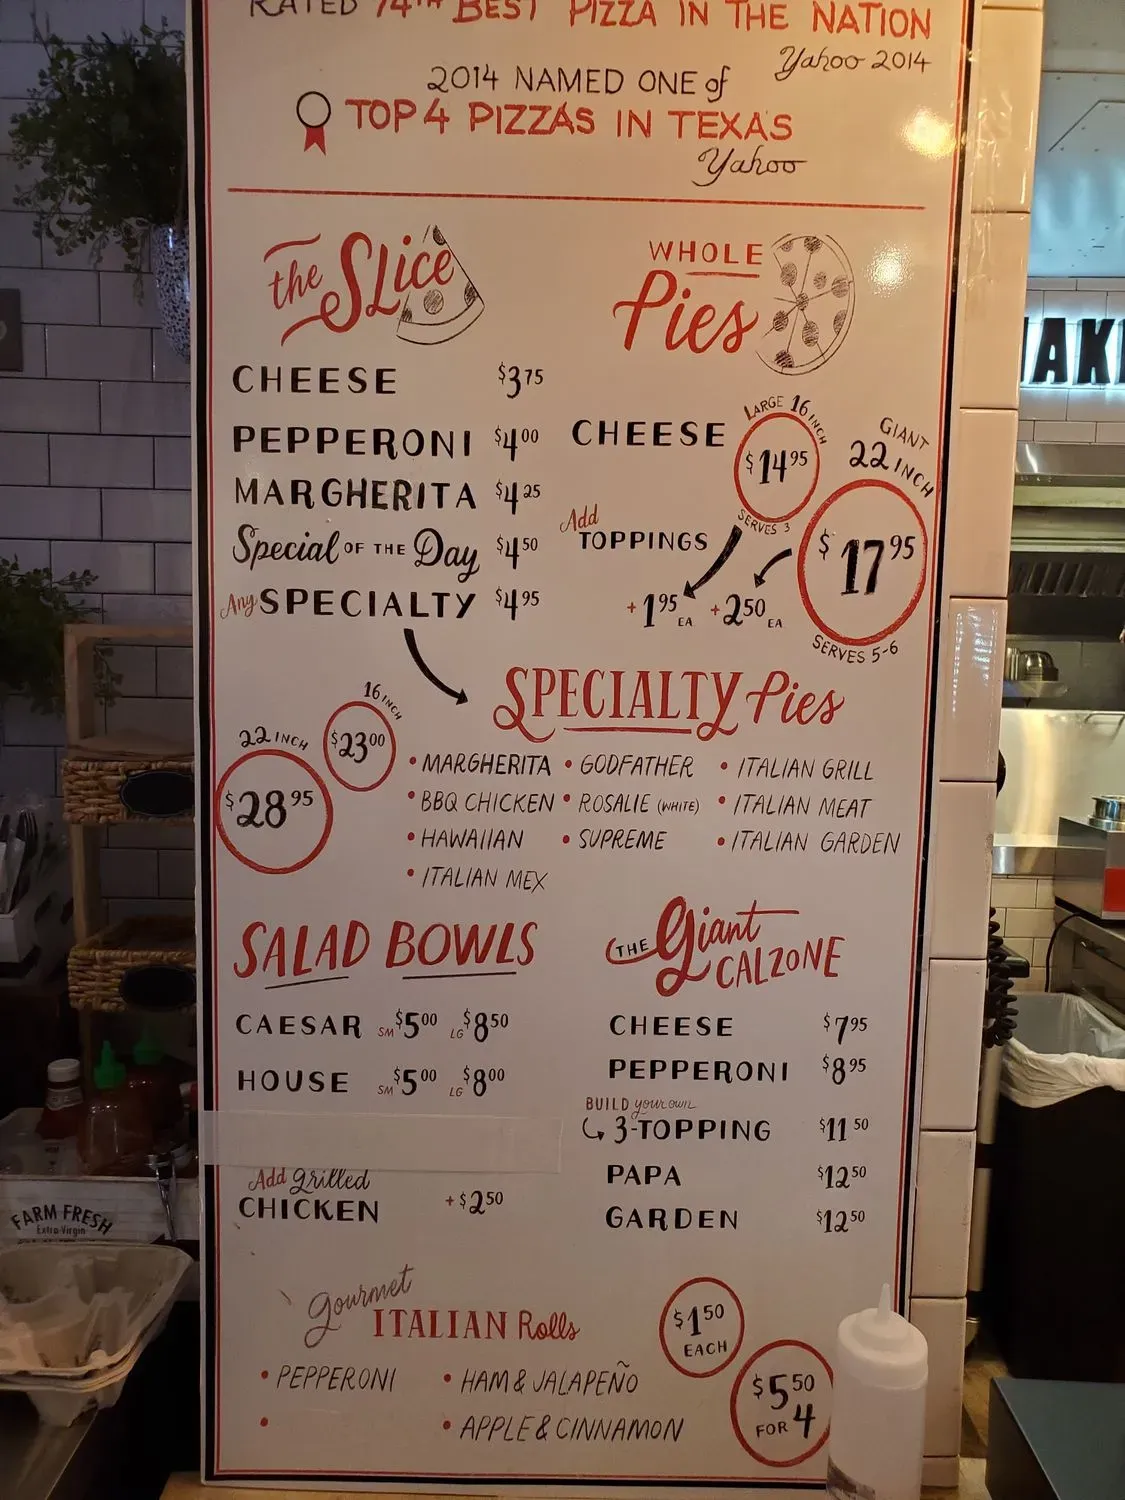 RATED 74TH BEST PIZZA IN THE NATION
Yahoo 2014
2014 NAMED ONE of
TOP 4 PIZZAS IN TEXAS
Yahoo
the Slice
CHEESE $3 75
PEPPERONI $4 00
MARGHERITA $4 25
Special OF THE Day $4 50
Any SPECIALTY $4 95
WHOLE
Pies
CHEESE
LARGE 16 INCH
$14 95
SERVES 3
GIANT
22 INCH
$17 95
SERVES 5-6
Add
TOPPINGS
+1 95 EA +2 50 EA
SPECIALTY Pies
16 INCH
$23 00
22 INCH
$28 95
• MARGHERITA • GODFATHER • ITALIAN GRILL
• BBQ CHICKEN • ROSALIE (WHITE) • ITALIAN MEAT
• HAWAIIAN • SUPREME • ITALIAN GARDEN
• ITALIAN MEX
SALAD BOWLS
CAESAR SM $5 00 LG $8 50
HOUSE SM $5 00 LG $8 00
Add grilled
CHICKEN +$2 50
THE Giant
CALZONE
CHEESE $7 95
PEPPERONI $8 95
BUILD your own
3-TOPPING $11 50
PAPA $12 50
GARDEN $12 50
gourmet
ITALIAN Rolls
$1 50
EACH
$5 50
FOR 4
• PEPPERONI • HAM & JALAPEÑO
• APPLE & CINNAMON
FARM FRESH
Extra-Virgin
AK